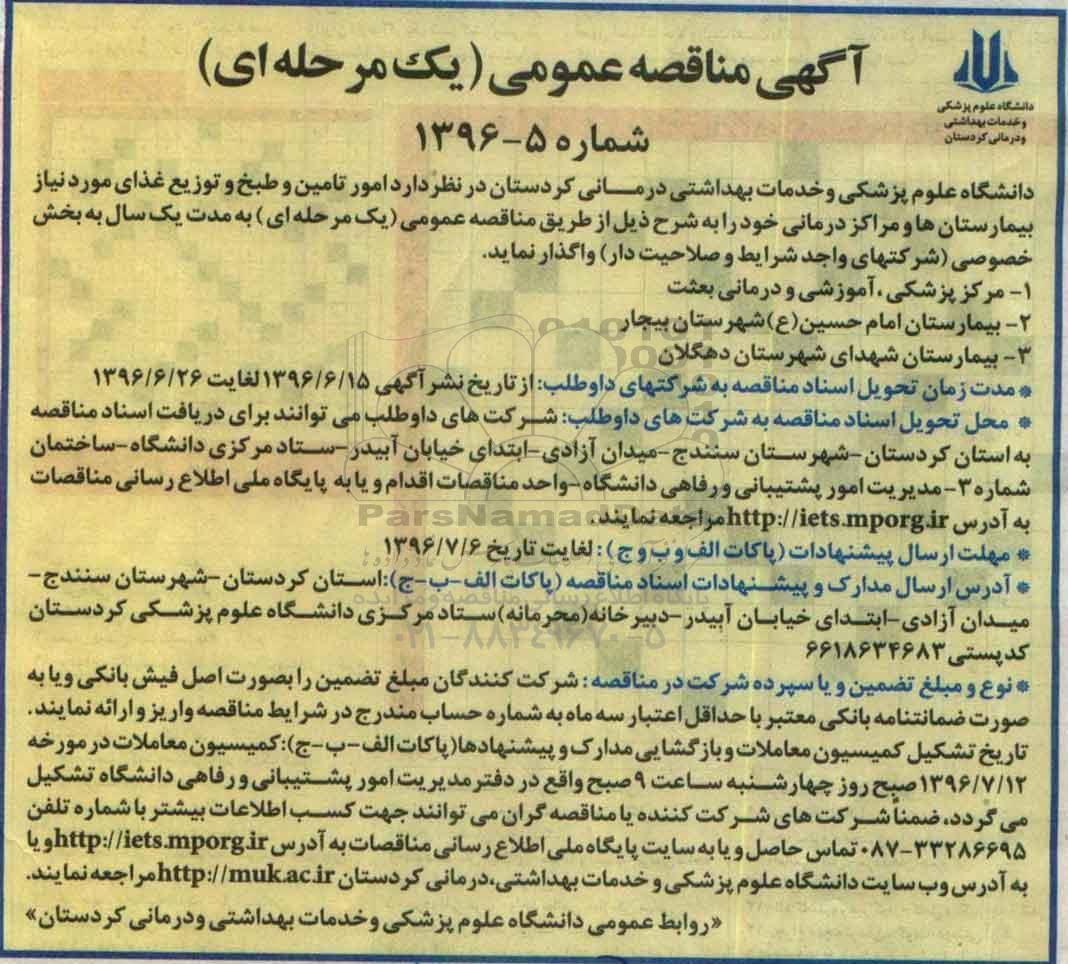 آگهی مناقصه عمومی (یک مرحله ای)
شماره ۵-۱۳۹۶
دانشگاه علوم پزشکی
وخدمات بهداشتی
ودرمانی کردستان
دانشگاه علوم پزشکی وخدمات بهداشتی درمانی کردستان در نظر دارد امور تامین و طبخ و توزیع غذای مورد نیاز
بیمارستان ها و مراکز درمانی خود را به شرح ذیل از طریق مناقصه عمومی (یک مرحله ای) به مدت یک سال به بخش
خصوصی (شرکتهای واجد شرایط و صلاحیت دار) واگذار نماید.
۱- مرکز پزشکی، آموزشی و درمانی بعثت
۲- بیمارستان امام حسین(ع) شهرستان بیجار
۳- بیمارستان شهدای شهرستان دهگلان
* مدت زمان تحویل اسناد مناقصه به شرکتهای داوطلب: از تاریخ نشر آگهی ۱۳۹۶/۶/۱۵ لغایت ۱۳۹۶/۶/۲۶
* محل تحویل اسناد مناقصه به شرکت های داوطلب: شرکت های داوطلب می توانند برای دریافت اسناد مناقصه
به استان کردستان-شهرستان سنندج-میدان آزادی-ابتدای خیابان آبیدر-ستاد مرکزی دانشگاه-ساختمان
شماره ۳-مدیریت امور پشتیبانی و رفاهی دانشگاه-واحد مناقصات اقدام و یا به پایگاه ملی اطلاع رسانی مناقصات
به آدرس http://iets.mporg.ir مراجعه نمایند.
ParsNamad
* مهلت ارسال پیشنهادات (پاکات الف و ب و ج): لغایت تاریخ ۱۳۹۶/۷/۶
* آدرس ارسال مدارک و پیشنهادات اسناد مناقصه (پاکات الف-ب-ج): استان کردستان-شهرستان سنندج-
پایگاه اطلاع رسانی مناقصه و مزایده
میدان آزادی-ابتدای خیابان آبیدر-دبیرخانه(محرمانه)ستاد مرکزی دانشگاه علوم پزشکی کردستان
۰۲۱-۸۸۳۴۹۶۷۰-۵
کدپستی ۶۶۱۸۶۳۴۶۸۳
* نوع و مبلغ تضمین و یا سپرده شرکت در مناقصه: شرکت کنندگان مبلغ تضمین را بصورت اصل فیش بانکی و یا به
صورت ضمانتنامه بانکی معتبر با حداقل اعتبار سه ماه به شماره حساب مندرج در شرایط مناقصه واریز و ارائه نمایند.
تاریخ تشکیل کمیسیون معاملات و بازگشایی مدارک و پیشنهادها(پاکات الف-ب-ج): کمیسیون معاملات در مورخه
۱۳۹۶/۷/۱۲ صبح روز چهارشنبه ساعت ۹ صبح واقع در دفتر مدیریت امور پشتیبانی و رفاهی دانشگاه تشکیل
می گردد، ضمناً شرکت های شرکت کننده یا مناقصه گران می توانند جهت کسب اطلاعات بیشتر با شماره تلفن
۰۸۷-۳۳۲۸۶۶۹۵ تماس حاصل و یا به سایت پایگاه ملی اطلاع رسانی مناقصات به آدرس http://iets.mporg.ir و یا
به آدرس وب سایت دانشگاه علوم پزشکی و خدمات بهداشتی، درمانی کردستان http://muk.ac.ir مراجعه نمایند.
«روابط عمومی دانشگاه علوم پزشکی وخدمات بهداشتی ودرمانی کردستان»